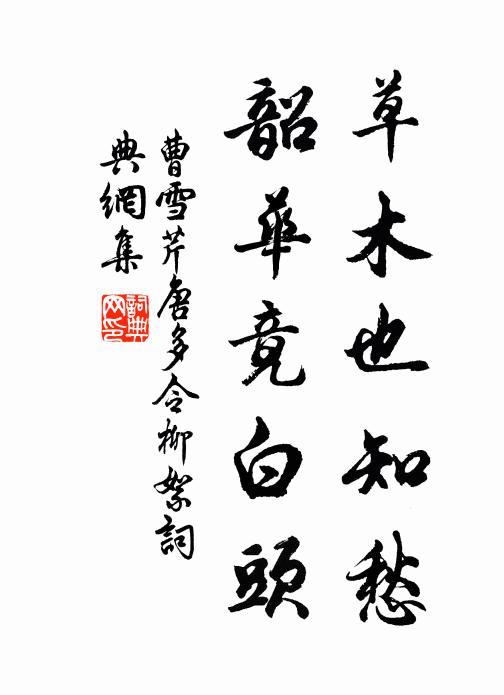 草木也知愁
韶華竟白頭
曹雪芹唐多令柳絮詞
典網集
詞典
网印